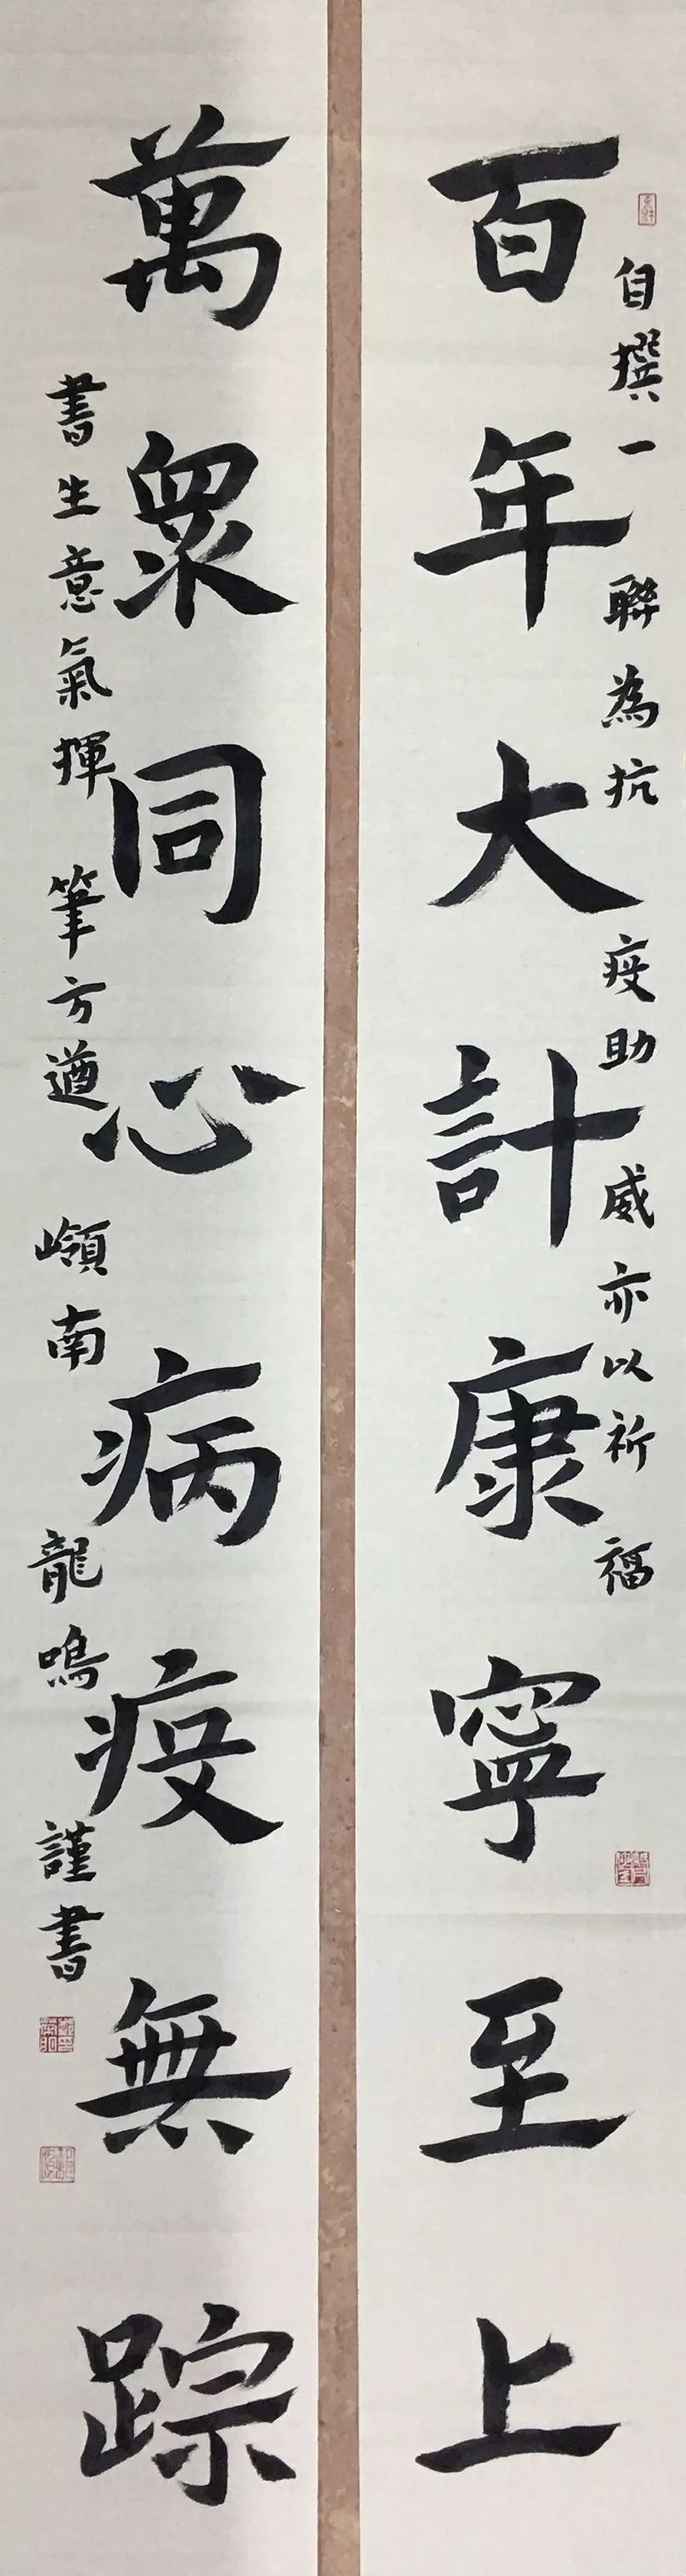 自撰一聯為抗疫助威亦以祈福
百年大計康寧至上
萬眾同心病疫無踪
書生意氣揮筆方遒嶺南龍鳴謹書